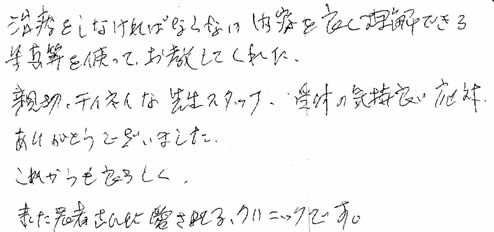 治療をしなければならない内容を良く理解できる
写真等を使って、お教してくれた。
親切、テイネイな先生スタッフ、受付の気持良い応対、
ありがとうございました。
これからも宜ろしく。
また患者さんに愛されるクリニックです。